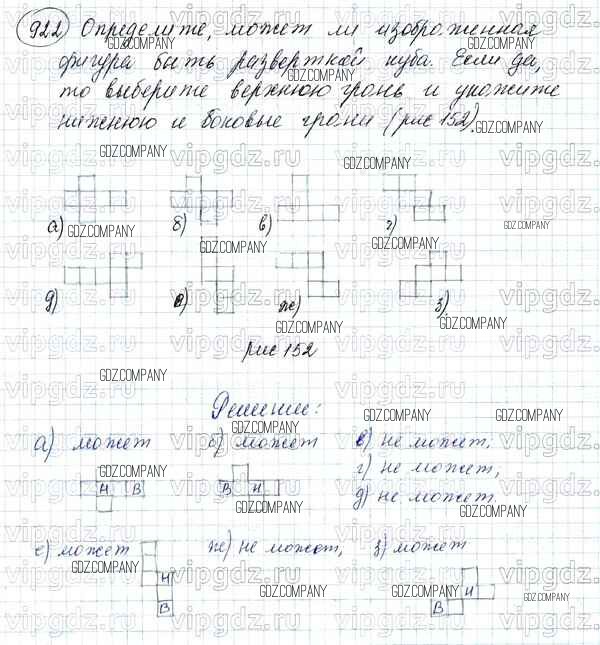 922 Определите, может ли изображенная
фигура быть разверткой куба. Если да,
то выберите верхнюю грань и укажите
нижнюю и боковые грани (рис 152).
а) б) в) г)
д) е) ж) з)
рис 152
Решение:
а) может б) может в) не может,
г) не может,
д) не может.
Н В В Н
е) может ж) не может, з) может
Н Н
В В
GDZ.COMPANY
vipgdz.ru